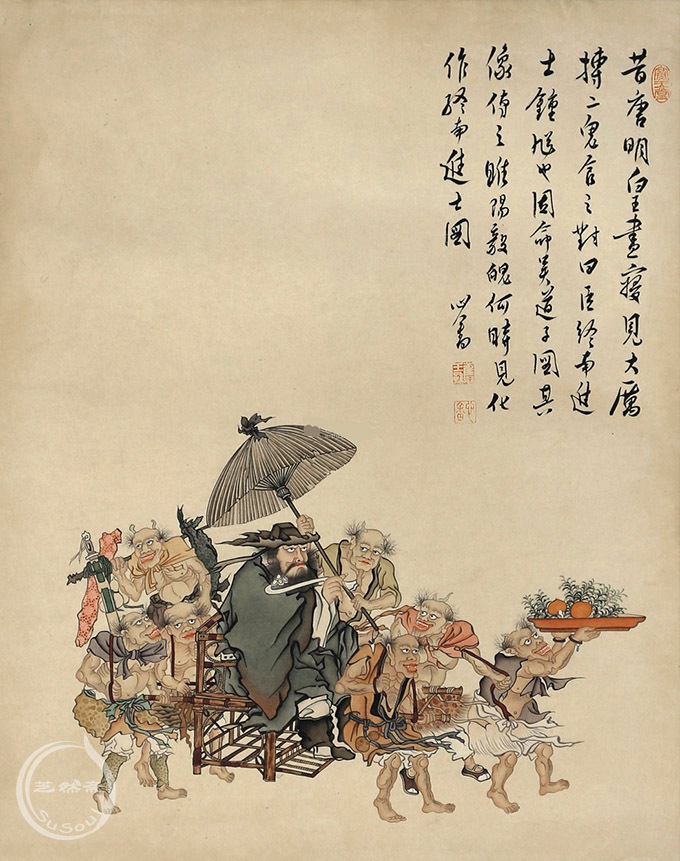 昔唐明皇晝寢見大厲
搏二鬼食之對曰臣終南進
士鍾馗也因命吳道子圖其
像傳之睢陽毅魄何時見化
作終南進士圖
心畬
芝然斋